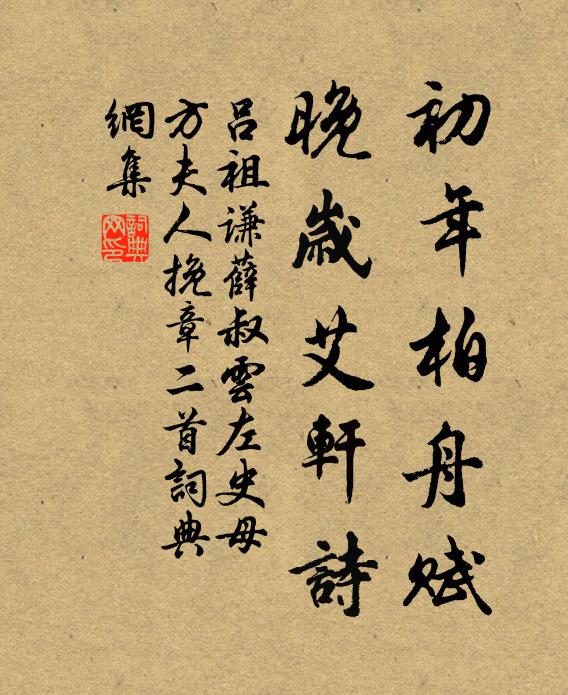 初年柏舟赋
晚岁艾軒詩
吕祖謙薛叔雲左史母
方夫人挽章二首詞典
網集
詞典網印